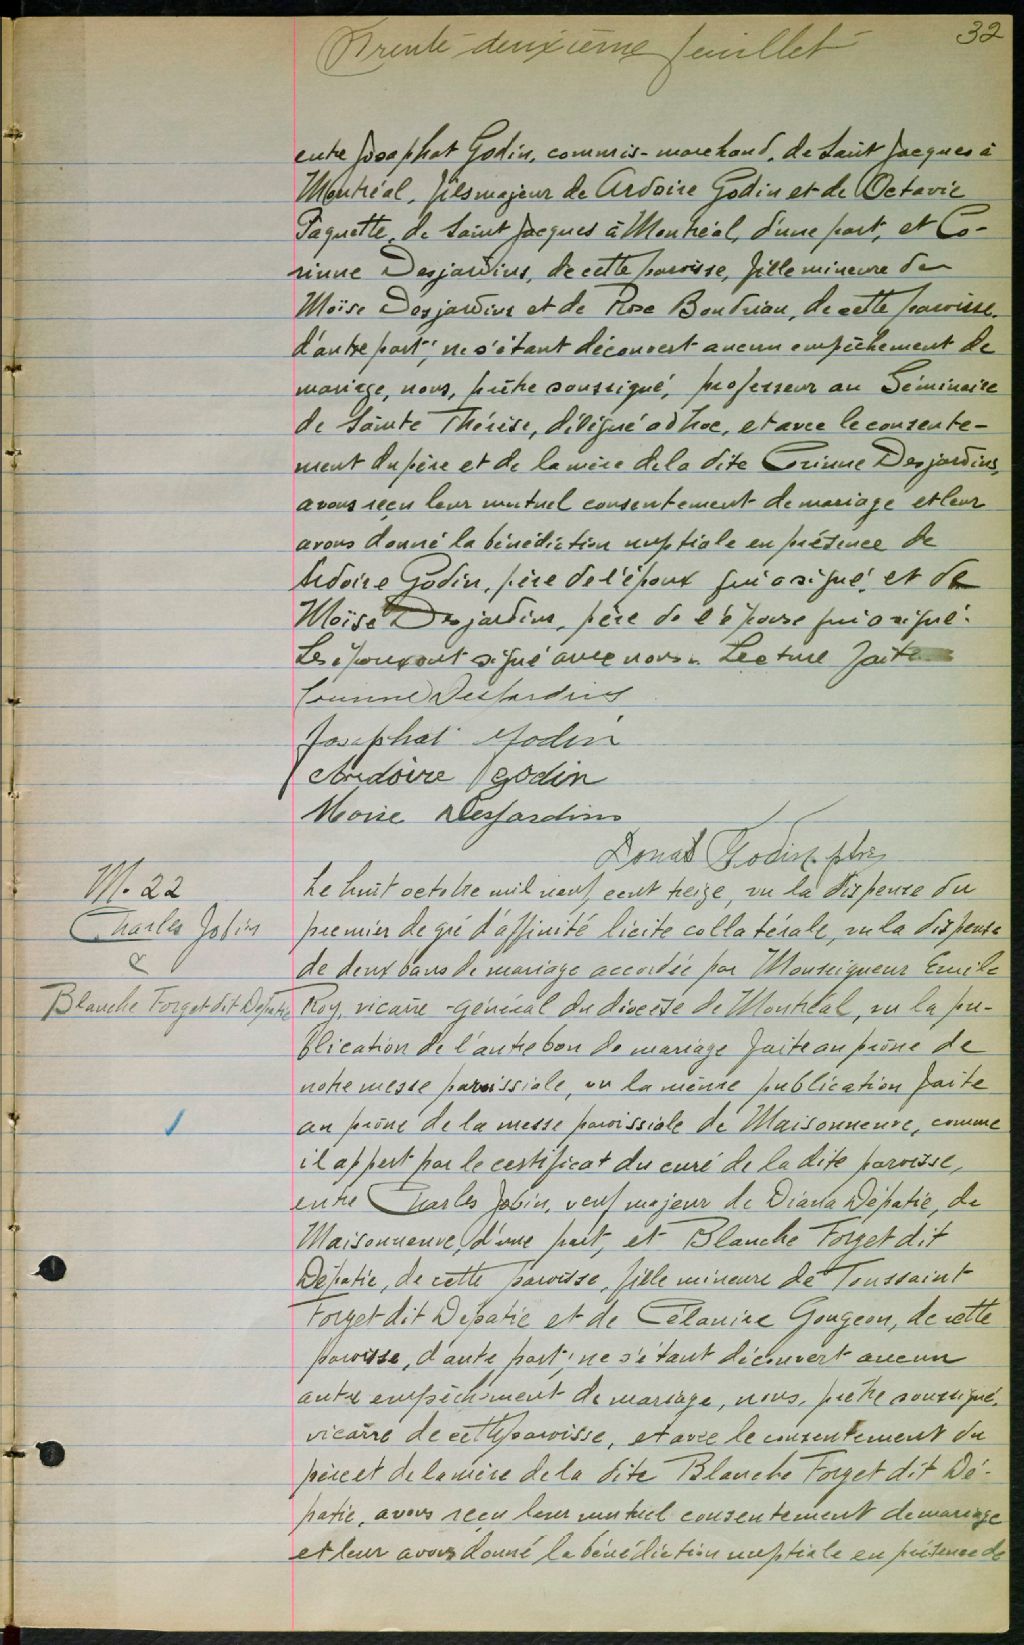 Trente-deuxième feuillet
32
entre Josaphat Godin, commis-marchand, de Saint Jacques à
Montréal, fils majeur de Ardoire Godin et de Octavie
Paquette, de Saint Jacques à Montréal, d'une part, et Co-
rinne Desjardins, de cette paroisse, fille mineure de
Moïse Desjardins et de Rose Boudrian, de cette paroisse,
d'autre part; ne s'étant découvert aucun empêchement de
mariage, nous, prêtre soussigné, professeur au Séminaire
de Sainte Thérèse, délégué ad hoc, et avec le consente-
ment du père et de la mère de la dite Corinne Desjardins,
avons reçu leur mutuel consentement de mariage et leur
avons donné la bénédiction nuptiale en présence de
Ardoire Godin, père de l'époux qui a signé, et de
Moïse Desjardins, père de l'épouse qui a signé.
Les époux ont signé avec nous. Lecture faite
Corinne Desjardins
Josephat Godin
Ardoire Godin
Moise Desjardins
Donat Godin ptre
M. 22
Charles Jobin
&
Blanche Forget dit Dépatie
Le huit octobre mil neuf cent treize, vu la dispense du
premier degré d'affinité licite collatérale, vu la dispense
de deux bans de mariage accordée par Monseigneur Emile
Roy, vicaire-général du diocèse de Montréal, vu la pu-
blication de l'autre ban de mariage faite au prône de
notre messe paroissiale, vu la même publication faite
au prône de la messe paroissiale de Maisonneuve, comme
il appert par le certificat du curé de la dite paroisse,
entre Charles Jobin, veuf majeur de Diana Dépatie, de
Maisonneuve, d'une part, et Blanche Forget dit
Dépatie, de cette paroisse, fille mineure de Toussaint
Forget dit Dépatie et de Célanire Gougeon, de cette
paroisse, d'autre part; ne s'étant découvert aucun
autre empêchement de mariage, nous, prêtre soussigné,
vicaire de cette paroisse, et avec le consentement du
père et de la mère de la dite Blanche Forget dit Dé-
patie, avons reçu leur mutuel consentement de mariage
et leur avons donné la bénédiction nuptiale en présence de